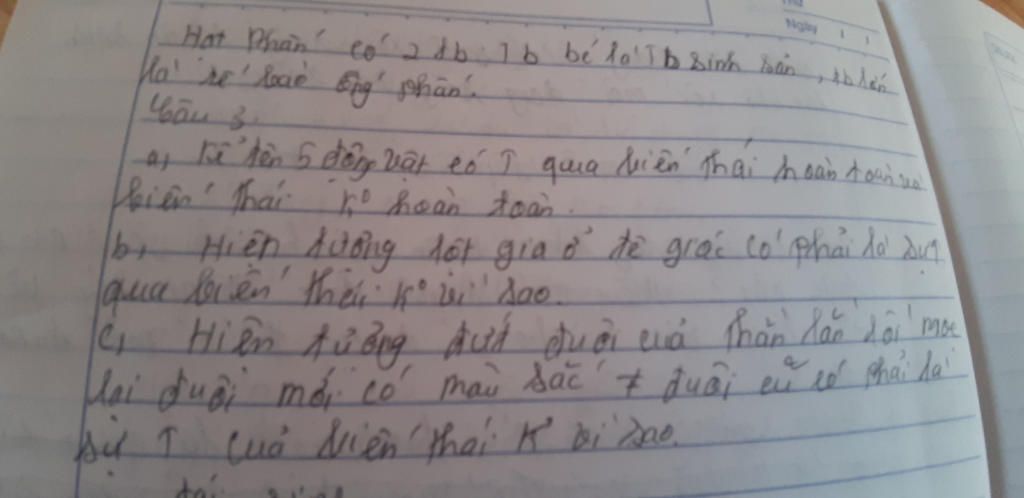 Thứ
Ngày
Hạt phấn có 2 tb: 1 b bé là Tb sinh sản, tb lớn
là tế bào ống phấn.
Câu 3.
a, Kể tên 5 động vật có ↑ qua biến thái hoàn toàn và
biến thái k° hoàn toàn.
b, Hiện tượng lột gia ở tê giác có phải là sự ↑
qua biến thái k° vì sao.
c, Hiện tưởng đứt đuôi của thằn lằn rồi mọc
lại đuôi mới có màu sắc ≠ đuôi cũ có phải là
sự ↑ của biến thái k° vì sao.